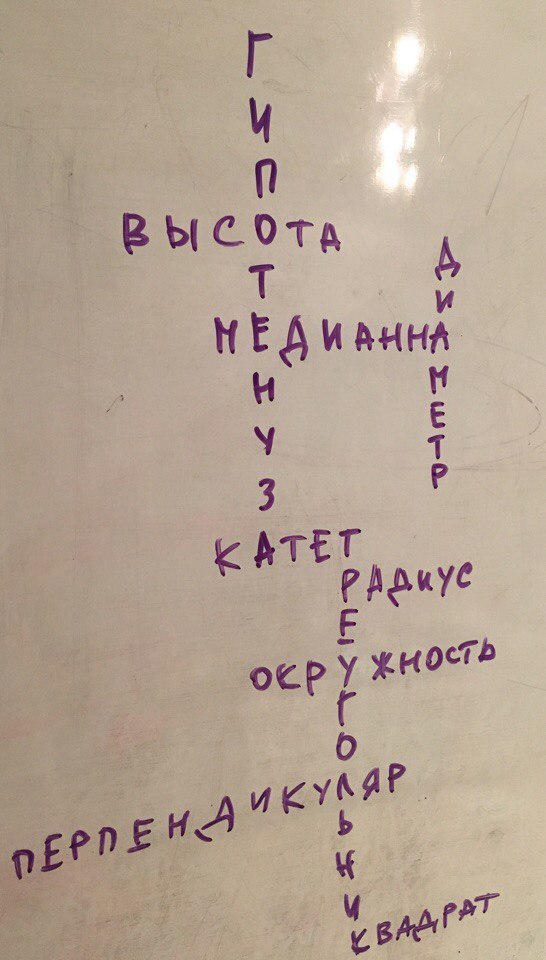 ГИПОТЕНУЗА
ВЫСОТА
ДИАМЕТР
МЕДИАННА
КАТЕТ
ТРЕУГОЛЬНИК
РАДИУС
ОКРУЖНОСТЬ
ПЕРПЕНДИКУЛЯР
КВАДРАТ